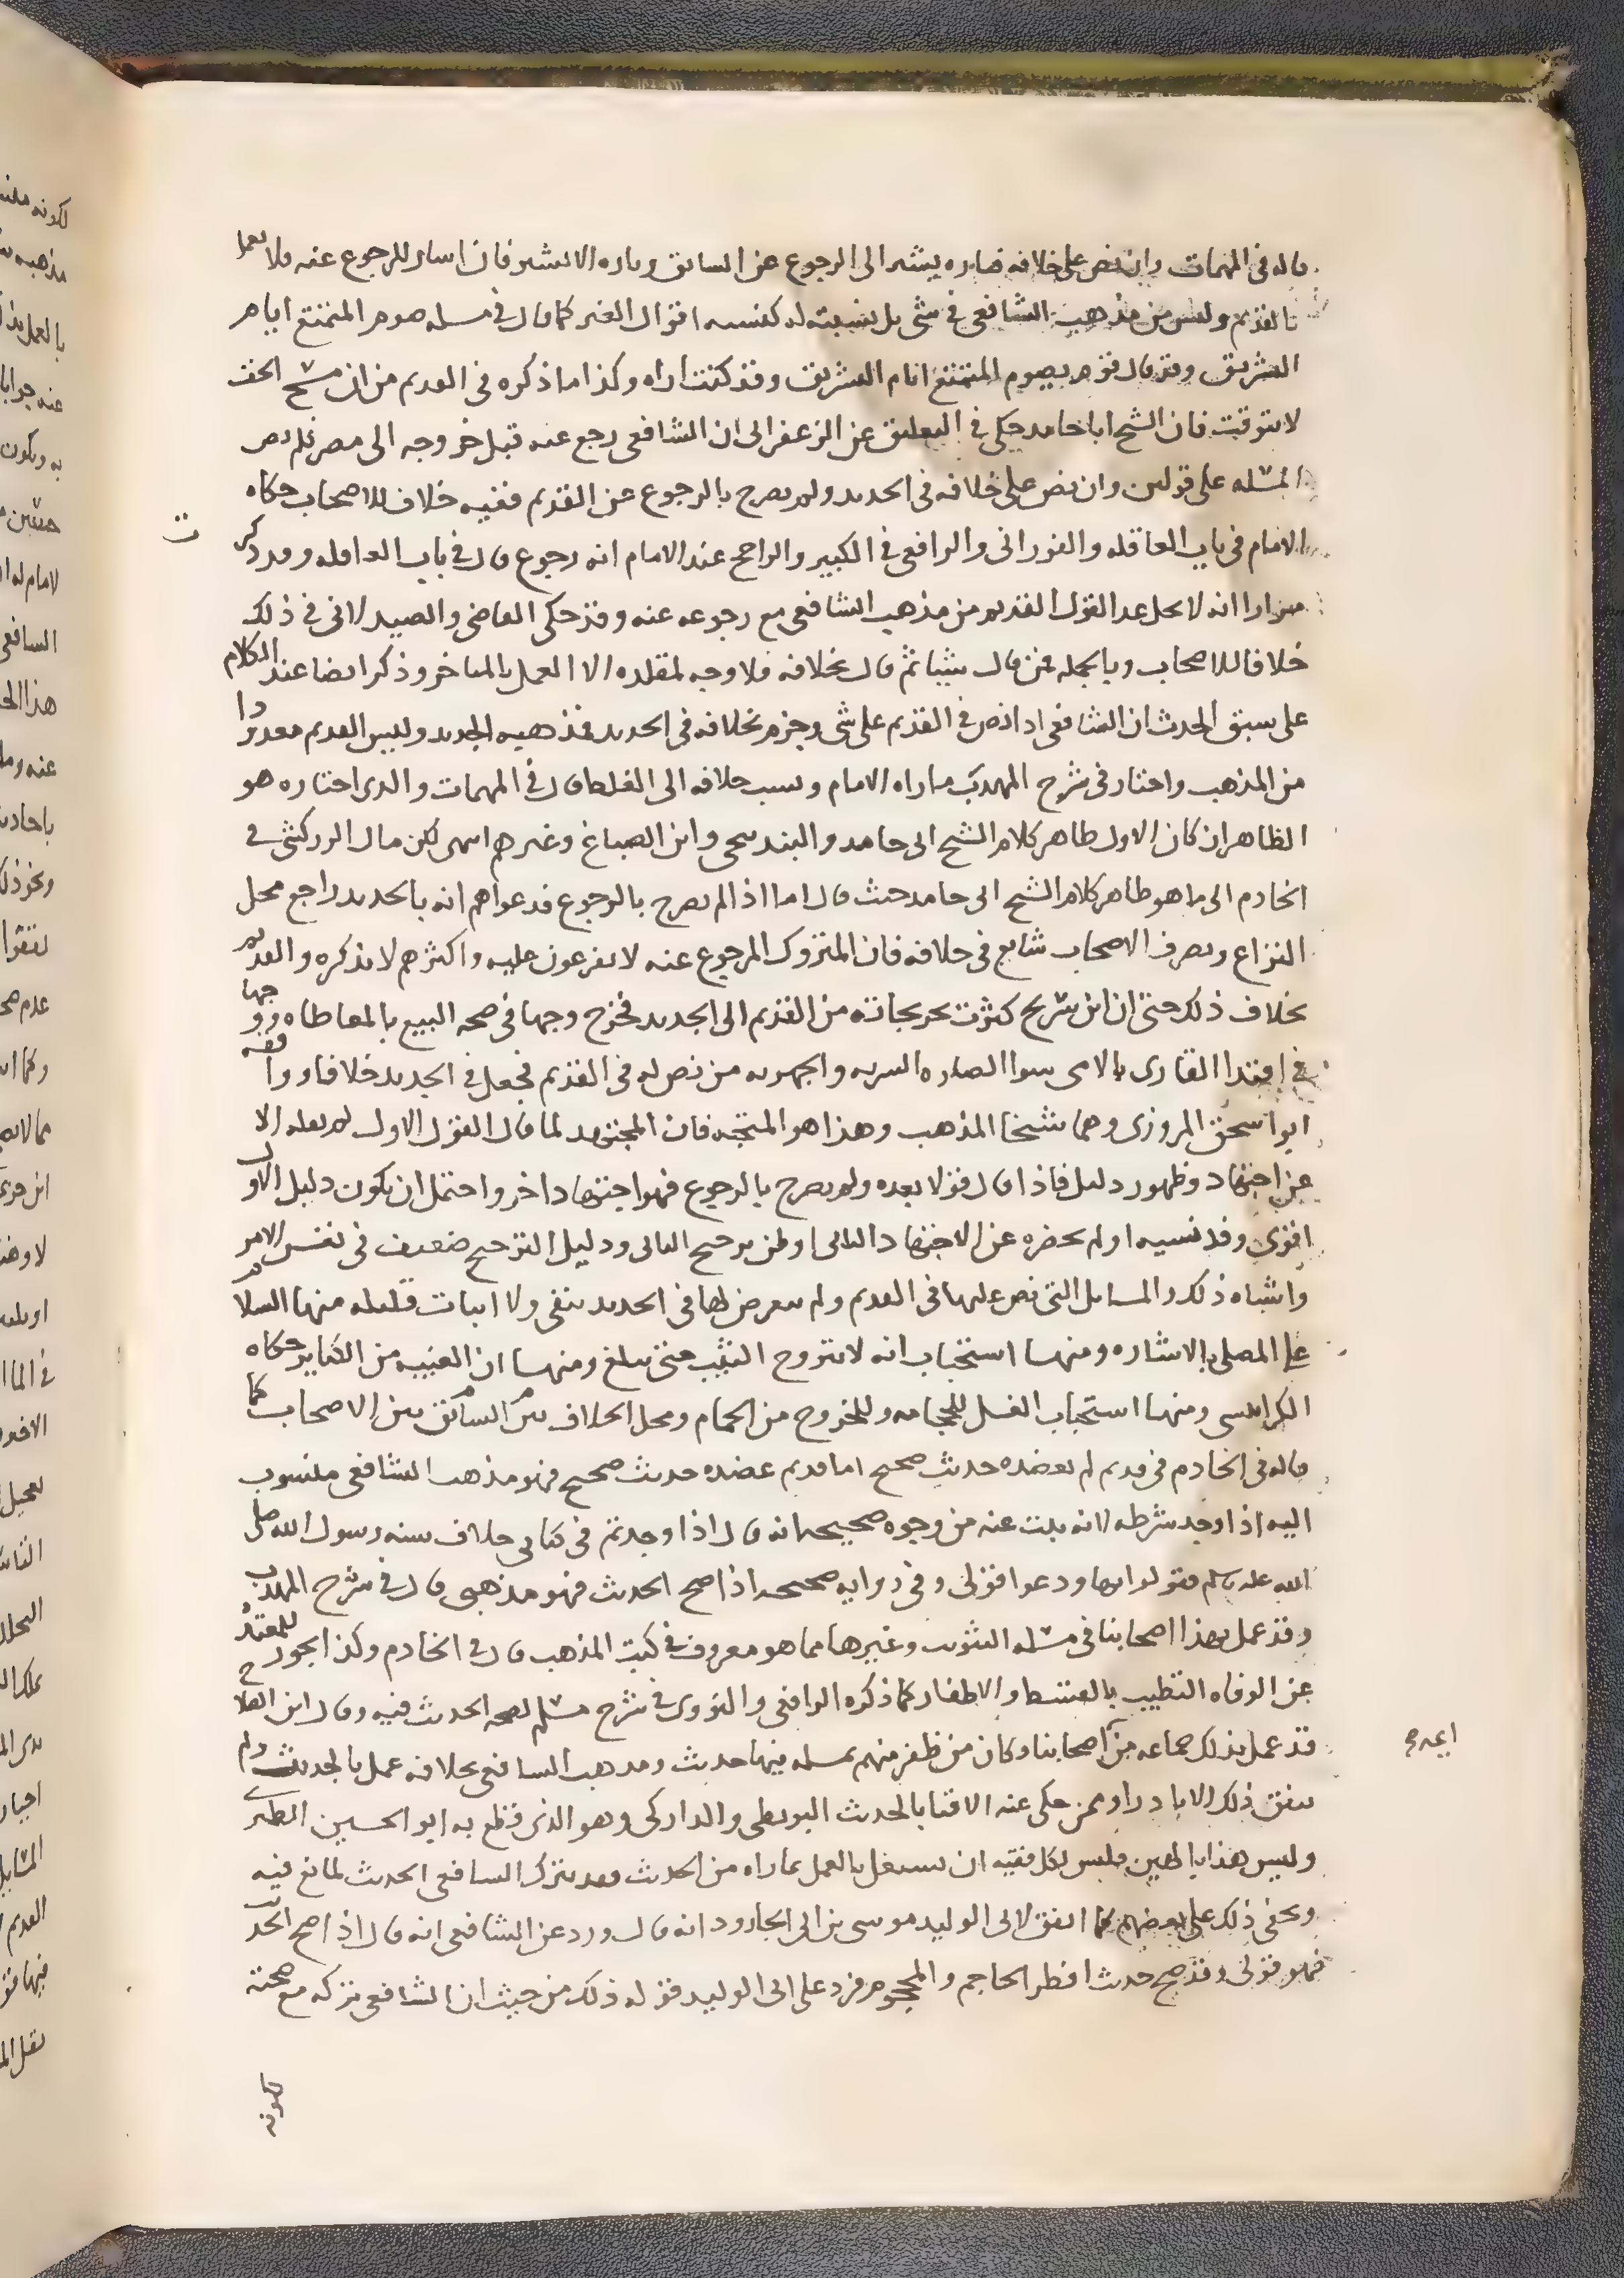 قاله في المهمات وان نص على خلافه فتاره يشير الى الرجوع عن السابق وتاره لا يشير فان اشار للرجوع عنه فلا يعمل
بالقديم وليس من مذهب الشافعي في شي بل نسبته له كنسبه اقوال الغير كما قال في مسله صوم المتمتع ايام
التشريق وقد قال قوم يصوم المتمتع ايام التشريق وقد كنت اراه وكذا ما ذكره في القديم من ان مسح الخف
لا يتوقت فان الشيخ ابا حامد حكى في التعليق عن الزعفراني ان الشافعي رجع عنه قبل خروجه الى مصر فلم
المسله على قولين وان نص على خلافه في الجديد ولم يصرح بالرجوع عن القديم ففيه خلاف للاصحاب حكاه
الامام في باب العاقله والفوراني والرافعي في الكبير والراجح عند الامام انه رجوع قال في باب العاقله وقد ذكر
مرارا انه لا يحل عد القول القديم من مذهب الشافعي مع رجوعه عنه وقد حكى القاضي والصيدلاني في ذلك
خلافا للاصحاب وبالجمله فمن قال شيا ثم قال بخلافه فلا وجه لمقلده الا العمل بالمتاخر وذكر ايضا عند الكلام
على سبق الحدث ان الشافعي اذا نص في القديم على شي وجزم بخلافه في الجديد فمذهبه الجديد وليس القديم معدودا
من المذهب واختار في شرح المهذب ما راه الامام ونسب خلافه الى الغلط قال في المهمات والذي اختاره هو
الظاهر ان كان الاول ظاهر كلام الشيخ ابي حامد والبندنيجي وابن الصباغ وغيرهم انتهى لكن مال الزركشي في
الخادم الى ما هو ظاهر كلام الشيخ ابي حامد حيث قال اما اذا لم يصرح بالرجوع فدعواهم انه بالجديد راجع محل
النزاع وتصرف الاصحاب شايع في خلافه فان المتروك المرجوع عنه لا يفرعون عليه واكثرهم لا يذكره والقديم
بخلاف ذلك حتى ان ابن سريج كثرت تخريجاته من القديم الى الجديد فخرج وجها في صحه البيع بالمعاطاه ووجها
في اقتدا القاري بالامي سوا الصلاه السريه والجهريه من نص له في القديم فجعل في الجديد خلافا ووافقه
ابو اسحق المروزي وهما شيخا المذهب وهذا هو المتجه فان المجتهد لما قال القول الاول لم يقله الا
عن اجتهاد وظهور دليل فاذا قال قولا بعده ولم يصرح بالرجوع فهو اجتهاد اخر واحتمل ان يكون دليل الاول
اقوى وقد نسيه او لم يحضره عن الاجتهاد الثاني او ظن ترجيح الثاني ودليل الترجيح ضعيف في نفس الامر
واشباه ذلك والمسايل التي نص عليها في القديم ولم يتعرض لها في الجديد بنفي ولا اثبات قليله منها السلام
على المصلي بالاشاره ومنها استحباب انه لا يتزوج الثيب حتى تبلغ ومنها ان الغيبه من الكباير حكاه
الكرابيسي ومنها استحباب الغسل للحجامه وللخروج من الحمام ومحل الخلاف السابق بين الاصحاب كما
قاله في الخادم في قديم لم يعضده حديث صحيح اما قديم عضده حديث صحيح فهو مذهب الشافعي منسوب
اليه اذا وجد شرطه لانه ثبت عنه من وجوه صحيحه انه قال اذا وجدتم في كتابي خلاف سنه رسول الله صلى
الله عليه وسلم فقولوا بها ودعوا قولي وفي روايه صحيحه اذا صح الحديث فهو مذهبي قال في شرح المهذب
وقد عمل بهذا اصحابنا في مسله التثويب وغيرها مما هو معروف في كتب المذهب قال في الخادم وكذا يجوز للمعتده
عن الوفاه التطيب بالقسط والاظفار كما ذكره الرافعي والنووي في شرح مسلم لصحه الحديث فيه وقال ابن الصلاح
قد عمل بذلك جماعه من اصحابنا وكان من ظفر منهم بمسله فيها حديث ومذهب الشافعي بخلافه عمل بالحديث ولم
ايمه
يتفق ذلك الا نادرا وممن حكى عنه الافتا بالحديث البويطي والداركي وهو الذي قطع به ابو الحسين الطبري
وليس هذا بالهين فليس لكل فقيه ان يستقل بالعمل بما راه من الحديث فقد يترك الشافعي الحديث لمانع فيه
ويخفى ذلك على بعضهم كما اتفق لابي الوليد موسى بن ابي الجارود انه قال ورد عن الشافعي انه قال اذا صح الحديث
فهو قولي وقد صح حديث افطر الحاجم والمحجوم فرد على ابي الوليد قوله ذلك من حيث ان الشافعي تركه مع صحته
لكونه